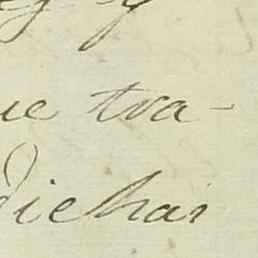 ue tra-
dichas